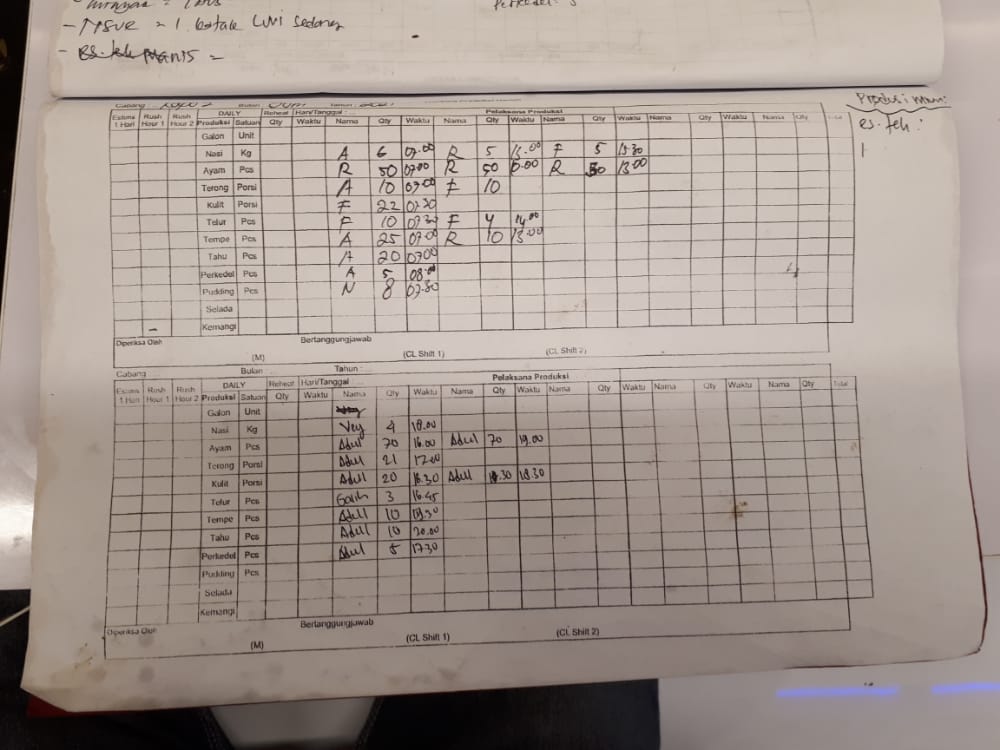 - 1 botale LMI Sedang
-
Cabang Bulan Tahun :
Produksi inum :
es. teh :
1
Estima 1 Hari Rush Hour 1 Rush Hour 2 DAILY Reheat Hari/Tanggal : Pelaksana Produksi
Produksi Satuan Qty Waktu Nama Qty Waktu Nama Qty Waktu Nama Qty Waktu Nama Qty Waktu Nama Qty Total
Galon Unit
Nasi Kg A 6 07.00 R 5 15.00 F 5 15.30
Ayam Pcs R 50 07.00 R 50 R 13.00
Terong Porsi A 10 07.00 F 10
Kulit Porsi F 22 07.30
Telur Pcs F 10 07.30 F 4 14.00
Tempe Pcs A 25 07.00 R 10 13.00
Tahu Pcs A 20 07.00
Perkedel Pcs A 5 08.00
Pudding Pcs N 8 07.30
Selada
- Kemangi
Diperiksa Oleh Bertanggungjawab
(M) (CL Shift 1) (CL Shift 2)
Cabang Bulan : Tahun :
Estima 1 Hari Rush Hour 1 Rush Hour 2 DAILY Reheat Hari/Tanggal Pelaksana Produksi
Produksi Satuan Qty Waktu Nama Qty Waktu Nama Qty Waktu Nama Qty Waktu Nama Qty Waktu Nama Qty Total
Galon Unit
Nasi Kg Vey 4 18.00
Ayam Pcs Adul 70 16.00 Adul 70 19.00
Terong Porsi Adul 21 17.00
Kulit Porsi Adul 20 16.30 Adul 18.30
Telur Pcs Galih 3 16.45
Tempe Pcs Adul 10
Tahu Pcs Adul 10 20.00
Perkedel Pcs Adul 5 17.30
Pudding Pcs
Selada
Kemangi
Diperiksa Oleh Bertanggungjawab
(M) (CL Shift 1) (CL Shift 2)